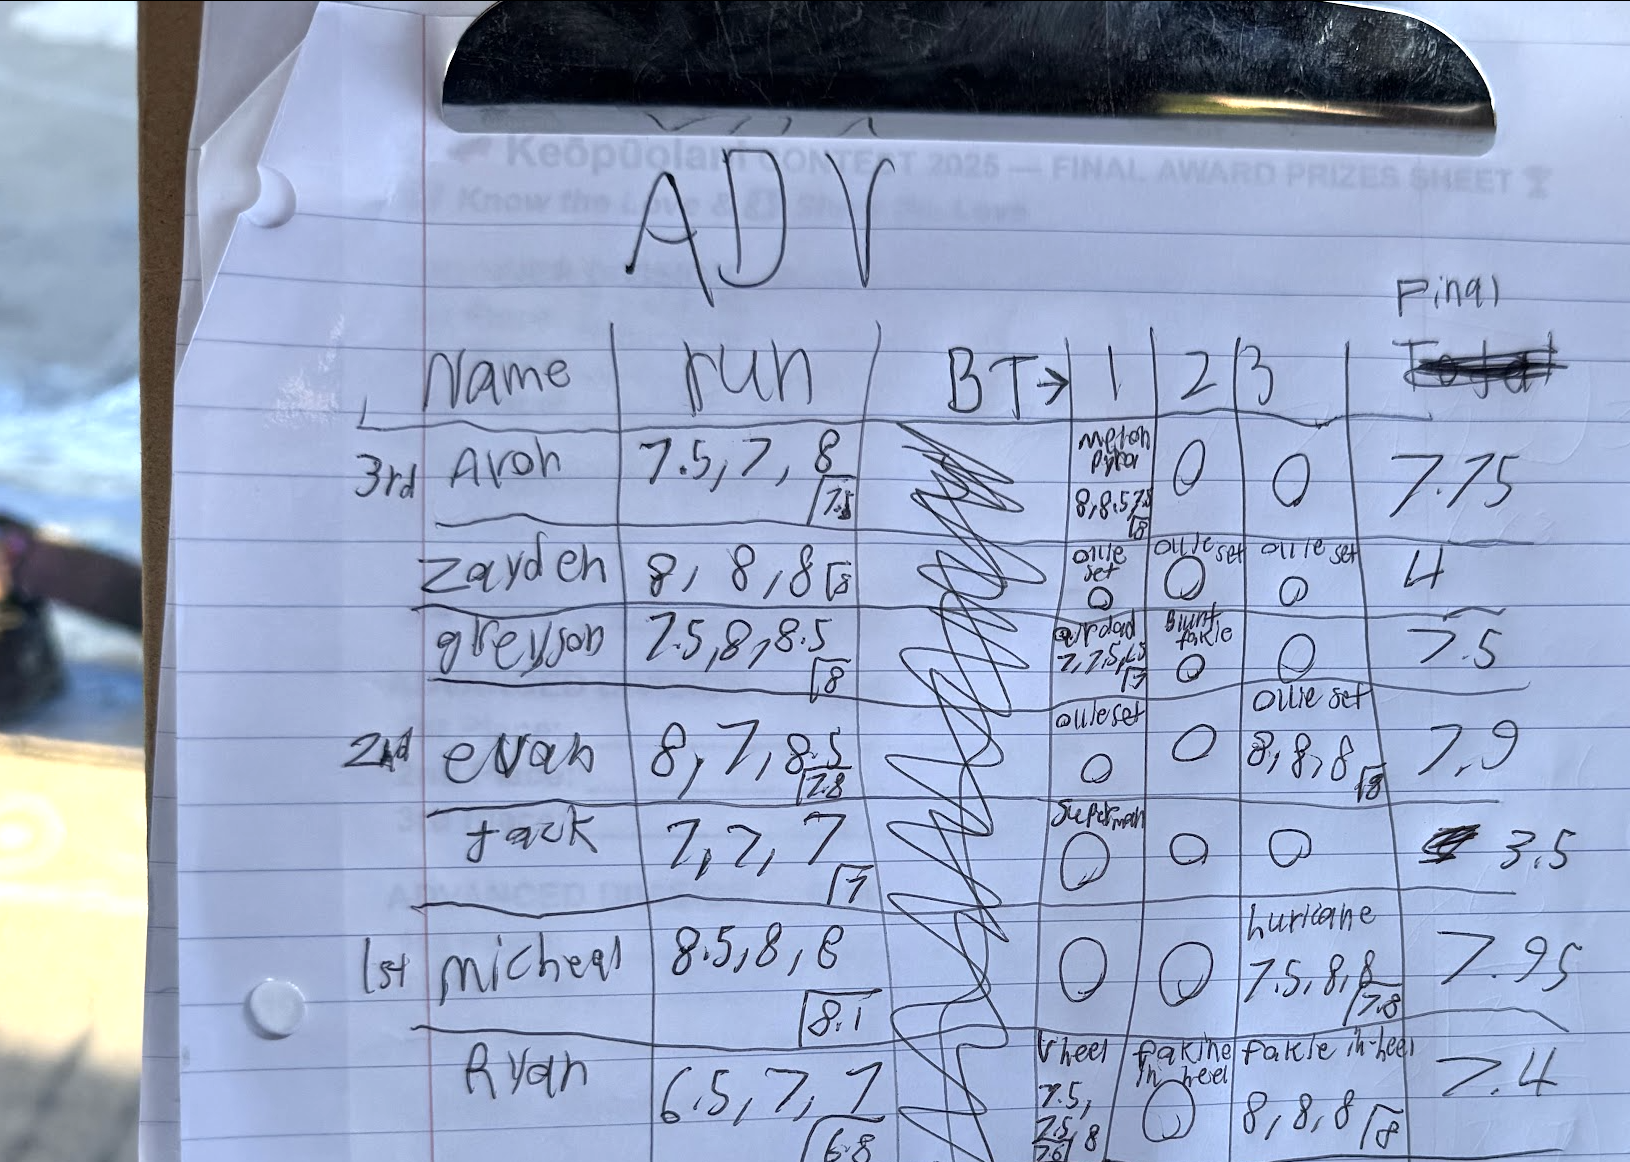 Keōpūolani CONTEST 2025 — FINAL AWARD PRIZES SHEET
Know the Love & Share the Love
ADV
Final
Name run BT→ 1 2 3
3rd Aron 7.5, 7, 8 7.5 0 0 7.75
8, 8.5, 7.5 8
Zayden 8, 8, 8 8 ollie set 0 ollie set 0 ollie set 0 4
greyson 7.5, 8, 8.5 8 airdad 7, 7.5, 6.5 7 blunt fakie 0 0 7.5
2nd evan 8, 7, 8.5 7.8 ollie set 0 0 ollie set 8, 8, 8 8 7.9
Jack 7, 7, 7 7 superman 0 0 0 3.5
1st micheal 8.5, 8, 8 8.1 0 0 huricane 7.5, 8, 8 7.8 7.95
Ryan 6.5, 7, 7 6.8 Vheel 7.5, 7.5, 8 7.6 fakine in heel 0 fakie in-heel 8, 8, 8 8 7.4